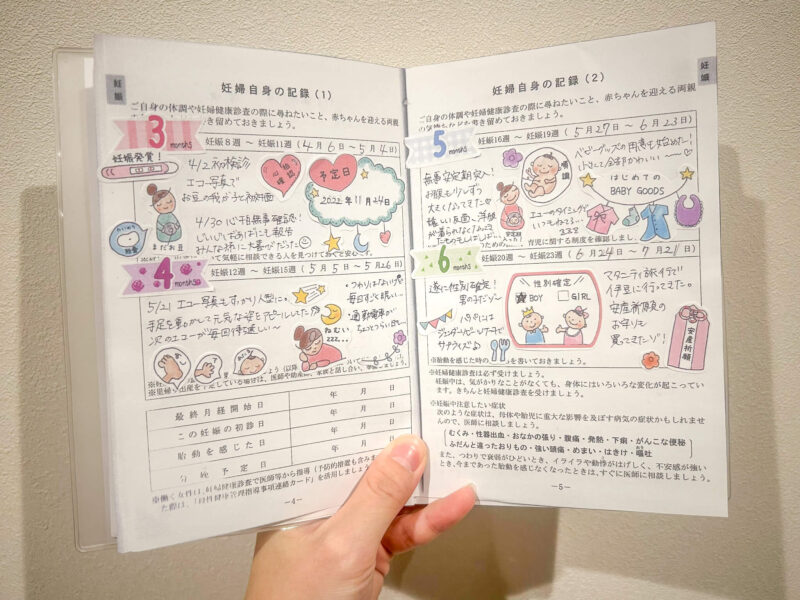 妊娠
妊婦自身の記録（1）
ご自身の体調や妊婦健康診査の際に尋ねたいこと、赤ちゃんを迎える両親
き留めておきましょう。
3
months
妊娠8週 ～ 妊娠11週（4月6日 ～ 5月4日）
妊娠発覚！
4/2 初検診
エコー写真で
お豆の我が子と初対面
心拍確認
予定日
2022年11月24日
4/30 心拍無事確認！
じぃじとばぁばにも報告
みんな
まだお豆
て気軽に相談できる人を見つけておくと安心です。
4
months
妊娠12週 ～ 妊娠15週（5月5日 ～ 5月26日）
5/21 エコー写真もすっかり人型に。
手足を動かして元気な姿をアピールしてた
次のエコーが毎回待遠しい〜
つわりはないけど
毎日すごく眠い…
通勤電車が
ちょっとつらい日も…
ねむい
zzz...
最終月経開始日 年 月 日
この妊娠の初診日 年 月 日
胎動を感じた日 年 月 日
分娩予定日 年 月 日
※働く女性は、妊婦健康診査で医師等から指導（予防的措置も含みま
た際は、「母性健康管理指導事項連絡カード」を活用しましょう
－4－
妊娠
妊婦自身の記録（2）
ご自身の体調や妊婦健康診査の際に尋ねたいこと、赤ちゃんを迎える両親
き留めておきましょう。
5
months
妊娠16週 ～ 妊娠19週（5月27日 ～ 6月23日）
無事安定期突入！
お腹も少しずつ
大きくなってきた
嬉しい反面、洋服
が着られなく
安定期
胎嚢
ベビーグッズの用意も始めた！
小さくて全部かわいい〜〜♡
はじめての
BABY GOODS
エコーのタイミングで
いつもねてる…
育児に関する制度を確認しましょ
6
months
妊娠20週 ～ 妊娠23週（6月24日 ～ 7月21日）
遂に性別確定！
男の子だ〜
性別確定
BOY
GIRL
ジェンダーリビールケーキで
サプライズ
マタニティ旅行で
伊豆に行ってきた。
安産祈願の
お守りを
買ってきたゾ！
安産祈願
※胎動を感じた時の
を書いておきましょう。
※妊婦健康診査は必ず受けましょう。
妊娠中は、気がかりなことがなくても、身体にはいろいろな変化が起こってい
ます。きちんと妊婦健康診査を受けましょう。
※妊娠中注意したい症状
次のような症状は、母体や胎児に重大な影響を及ぼす病気の症状かもしれませ
んので、医師に相談しましょう。
むくみ・性器出血・おなかの張り・腹痛・発熱・下痢・がんこな便秘
ふだんと違ったおりもの・強い頭痛・めまい・はきけ・嘔吐
また、つわりで衰弱がひどいとき、イライラや動悸がはげしく、不安感が強い
とき、今まであった胎動を感じなくなったときは、すぐに医師に相談しましょう。
－5－